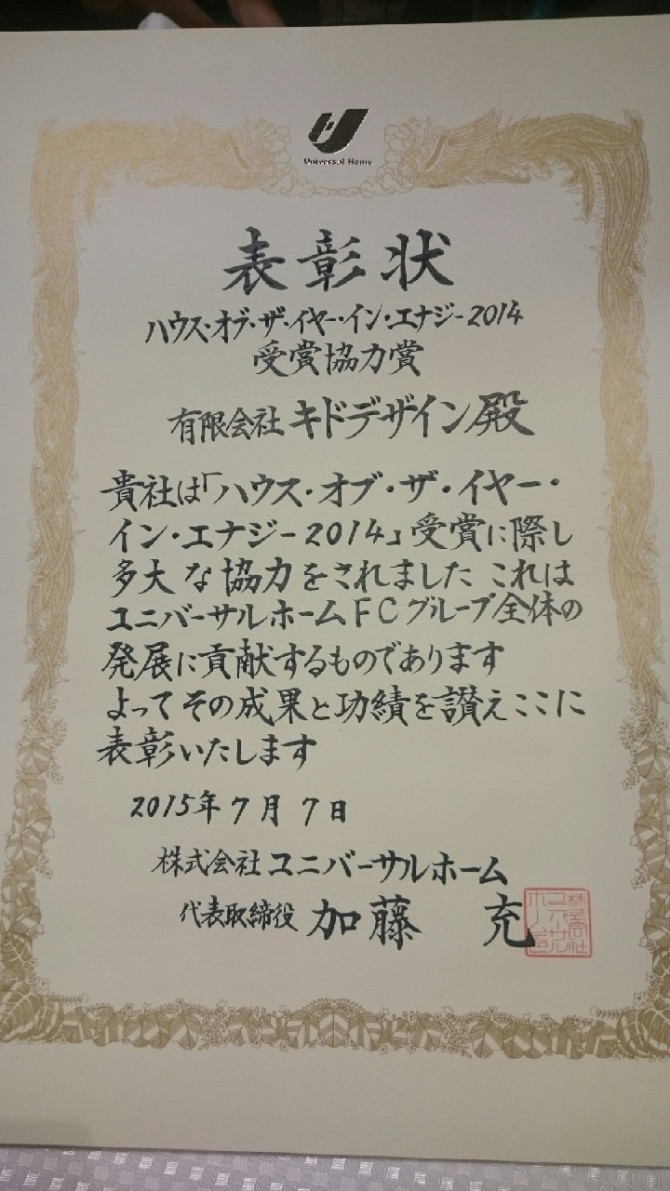 Universal Home
表彰状
ハウス・オブ・ザ・イヤー・イン・エナジー2014
受賞協力賞
有限会社 キドデザイン殿
貴社は「ハウス・オブ・ザ・イヤー・
イン・エナジー2014」受賞に際し
多大な協力をされました これは
ユニバーサルホームFCグループ全体の
発展に貢献するものであります
よってその成果と功績を讃えここに
表彰いたします
2015年7月7日
株式会社 ユニバーサルホーム
代表取締役 加藤 充